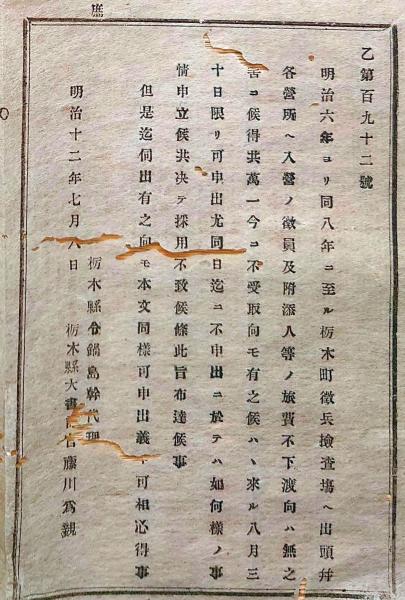 庶
乙第百九十二號
明治六年ヨリ同八年ニ至ル栃木町徴兵撿査塲ヘ出頭幷
各營所ヘ入營ノ徴員及附添人等ノ旅費不下渡向ハ無之
筈ニ候得共萬一今ニ不受取向モ有之候ハヽ來ル八月三
十日限リ可申出尤同日迄ニ不申出ニ於テハ如何様ノ事
情申立候共决テ採用不致候條此旨布達候事
但是迄伺出有之向モ本文同様可申出義ト可相心得事
明治十二年七月八日
栃木縣令鍋島幹代理
栃木縣大書官藤川爲親